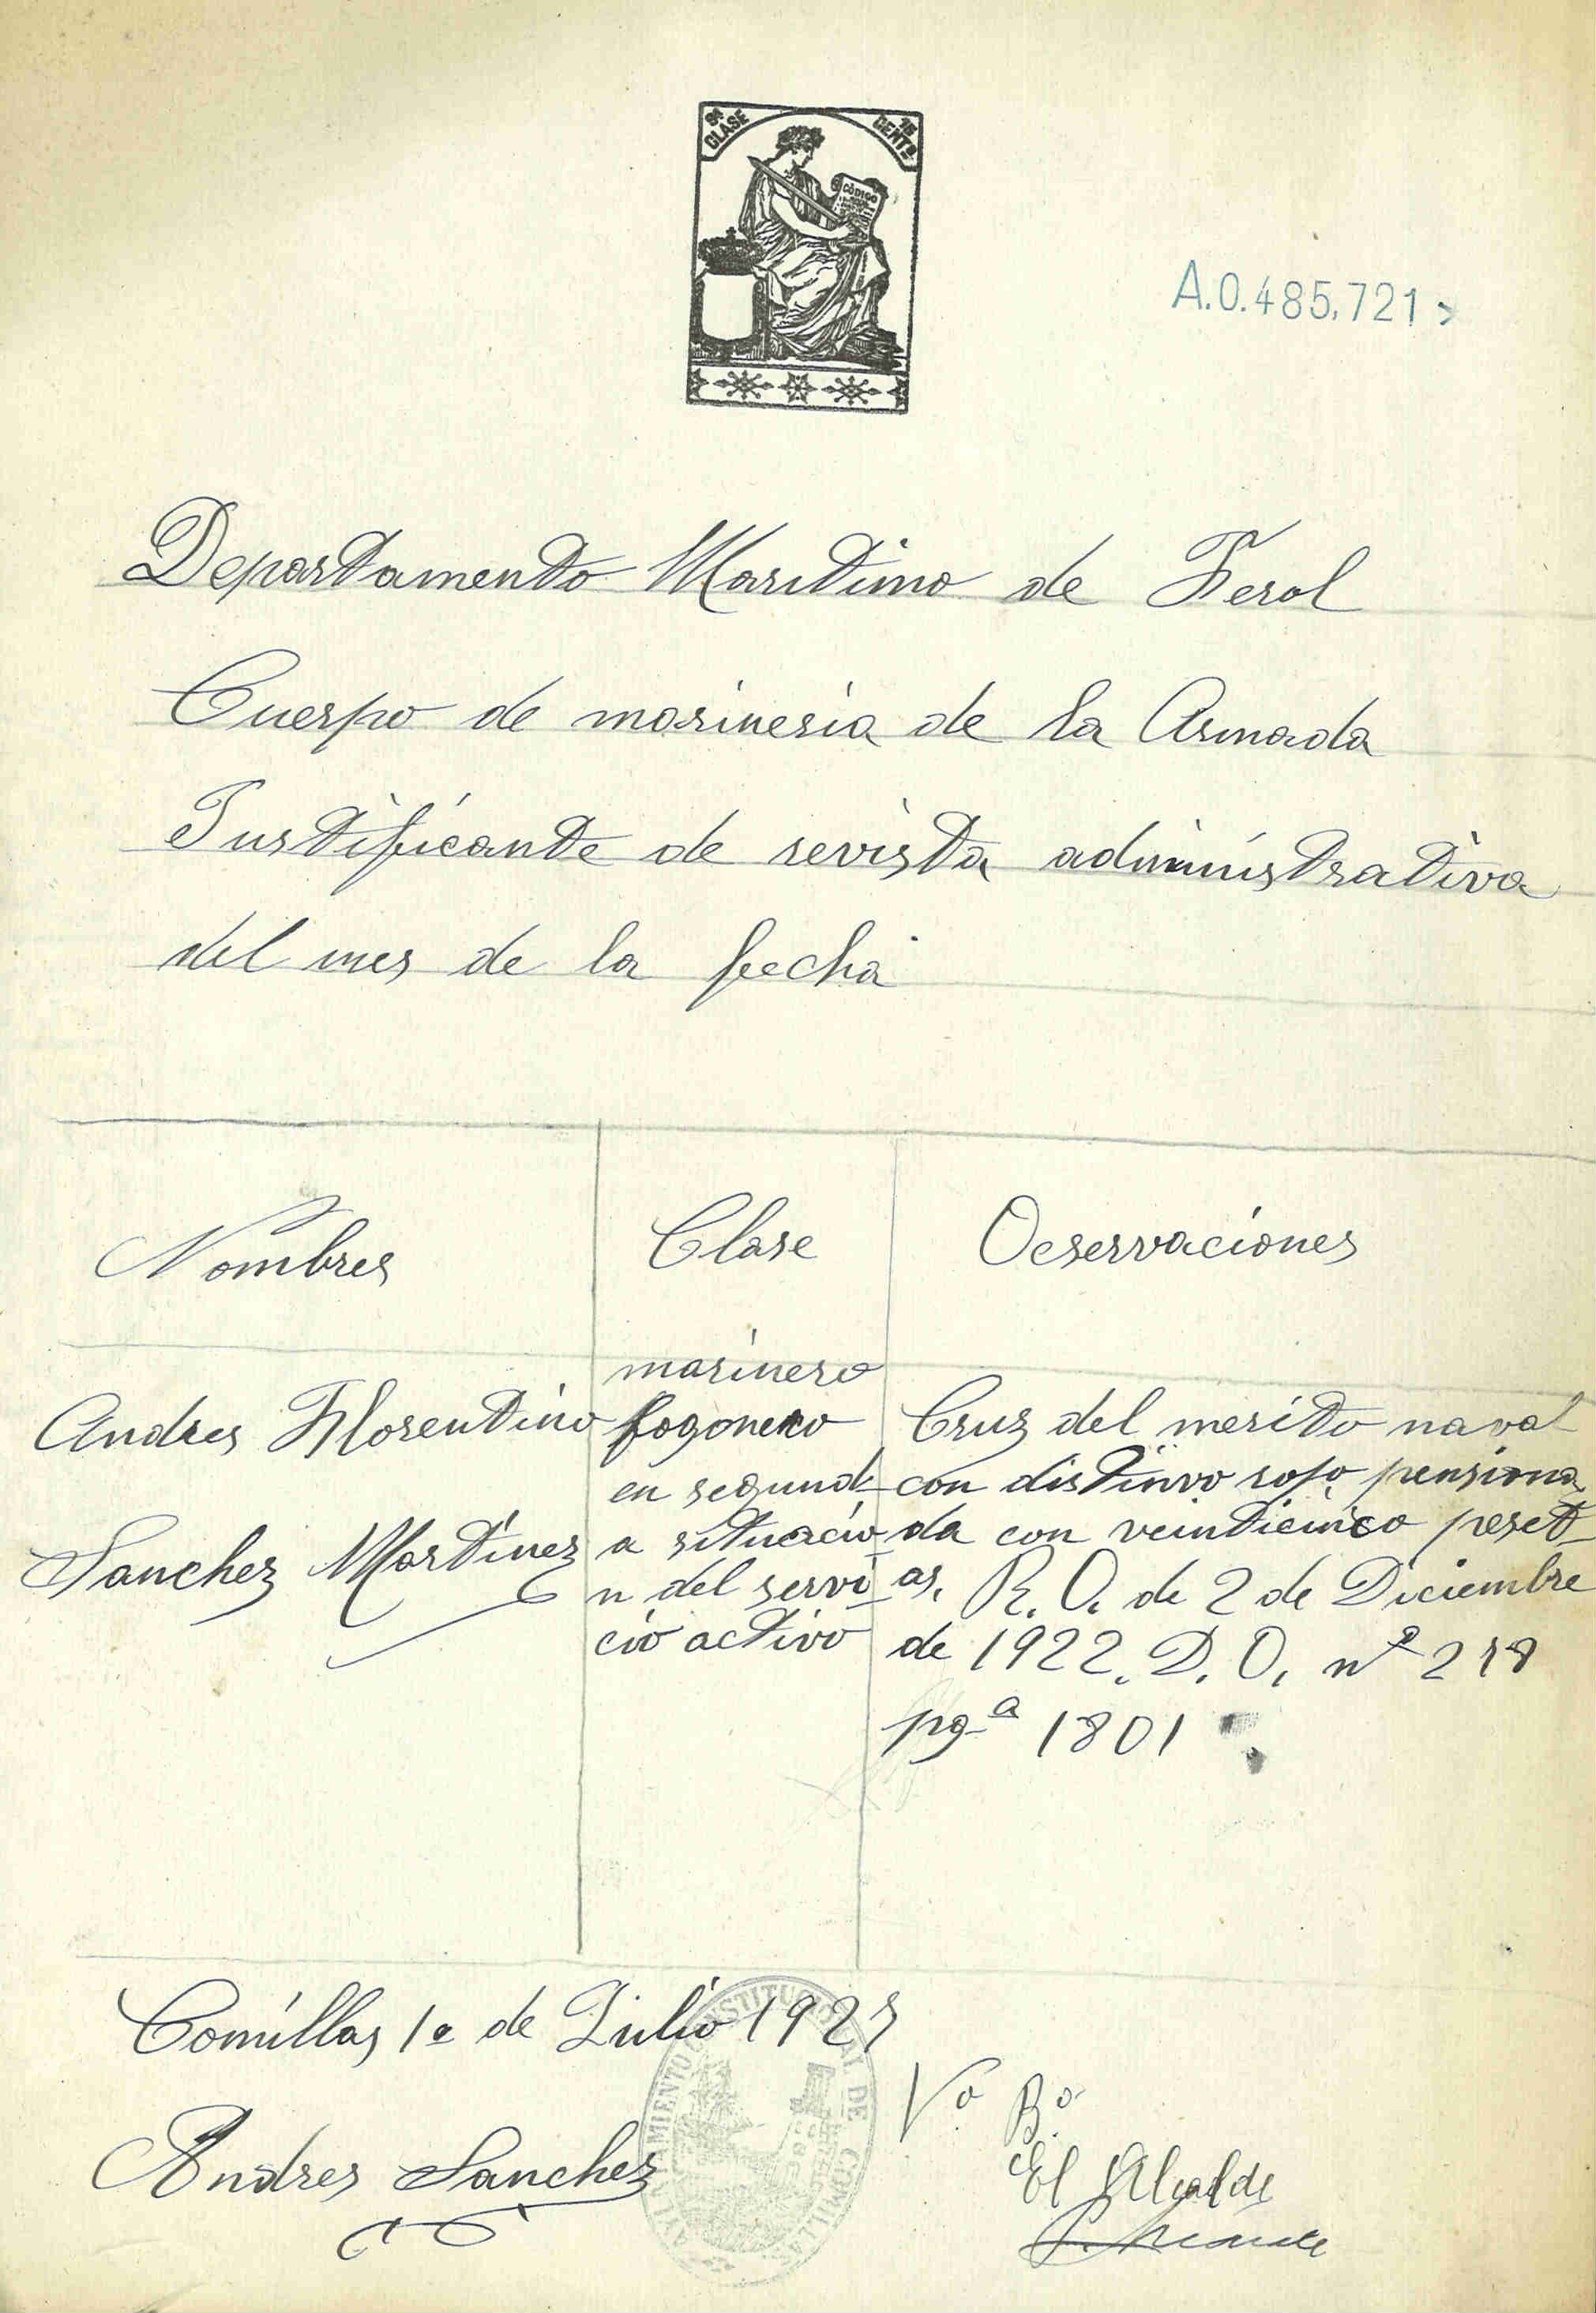 9ª CLASE
15 CENTs
CÓDIGO
A.0.485,721
Departamento Maritimo de Ferol
Cuerpo de marineria de la Armada
Justificante de revista administrativa
del mes de la fecha
Nombres
Clase
Ocservaciones
Andres Florentino
Sanchez Martinez
marinero
fogonero
en segund-
a situacio-
n del servi-
cio activo
Cruz del merito naval
con distinvo rojo, pensiona-
da con veinticinco peset-
as, R. O. de 2 de Diciembre
de 1922. D. O. nº
pgª 1801
Comillas 1º de Julio
Andres Sanchez
AYUNTAMIENTO CONSTITUCIONAL DE COMILLAS
Vº Bº
El Alcalde